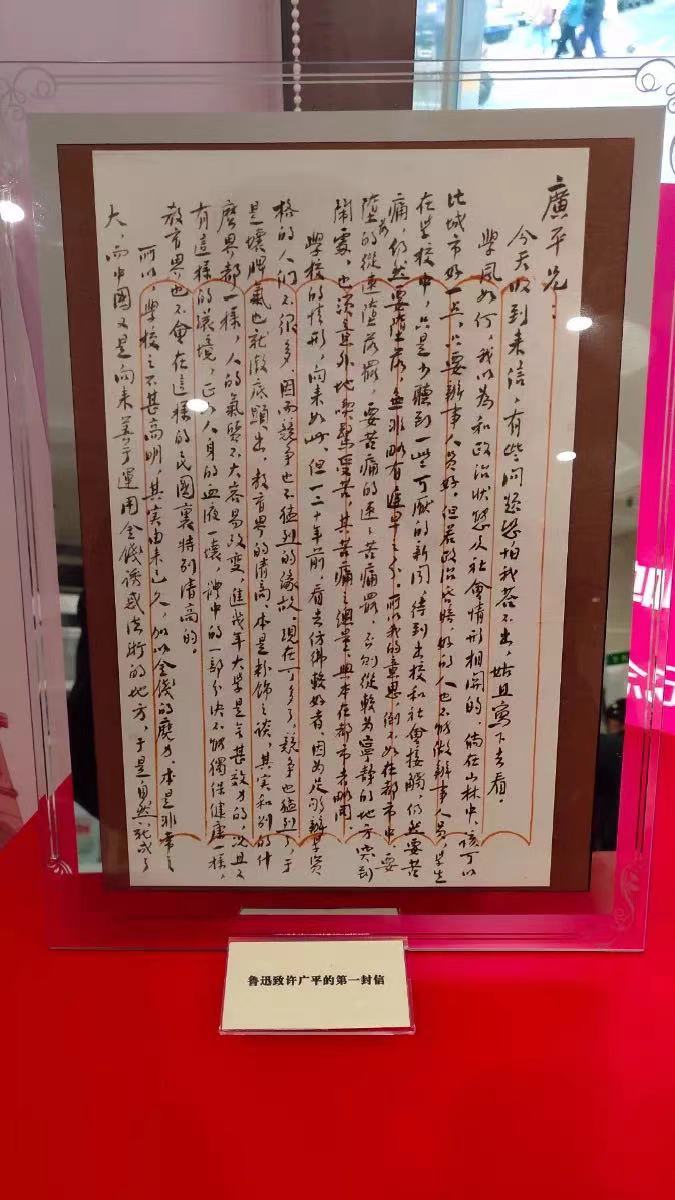 廣平兄：
今天收到来信，有些問題恐怕我答不出，姑且寫下去看。
學風如何，我以為和政治狀態及社會情形相関的，倘在山林中，該可以
比城市好一点，只要辦事人員好。但若政治昏暗，好的人也不能做辦事人員，學生
在学校中，只是少聽到一些可厭的新聞，待到出校和社會接觸，仍然要苦
痛，仍然要墮落，無非略有遲早之分。所以我的意思，倒不如在都市中，要
墮落的從速墮落罷，要苦痛的速速苦痛罷，否则從較為寧静的地方突到
鬧處，也須意外地喫驚受苦，其苦痛之總量，與本在都市者略同。
學校的情形，向来如此，但一二十年前，看去仿彿較好者，因為足夠辦學資
格的人們不很多，因而競争也不猛烈的緣故。現在可多了，競争也猛烈了，于
是壞脾氣也就澈底顯出。教育界的清高，本是粉飾之談，其實和别的什
麼界都一樣，人的氣質不大容易改變，進幾年大学是無甚效力的，況且又
有這樣的環境，正如人身的血液一壞，體中的一部分決不能獨保健康一樣，
教育界也不會在這樣的民國裏特别清高的。
所以，學校之不甚高明，其实由来已久，加以金錢的魔力，本是非常之
大，而中國又是向来善于運用金錢誘惑法術的地方，于是自然就成了
鲁迅致许广平的第一封信